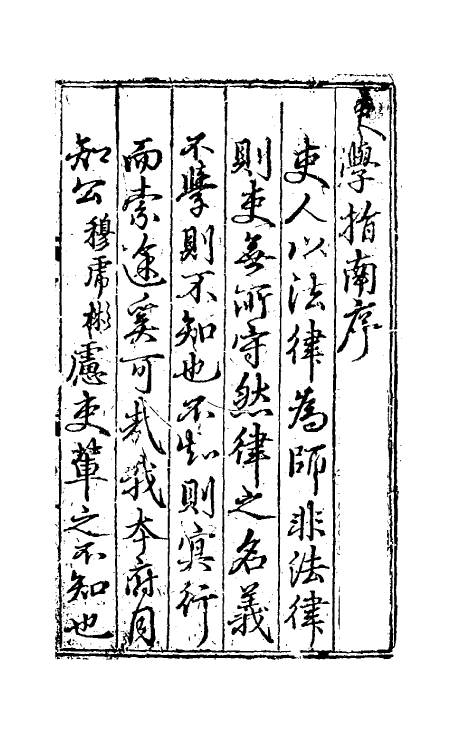 吏學指南序
吏人以法律為師非法律
則吏無所守然律之名義
不學則不知也不知則冥行
而索途奚可哉我本府同
知公穆虎彬慮吏輩之不知也